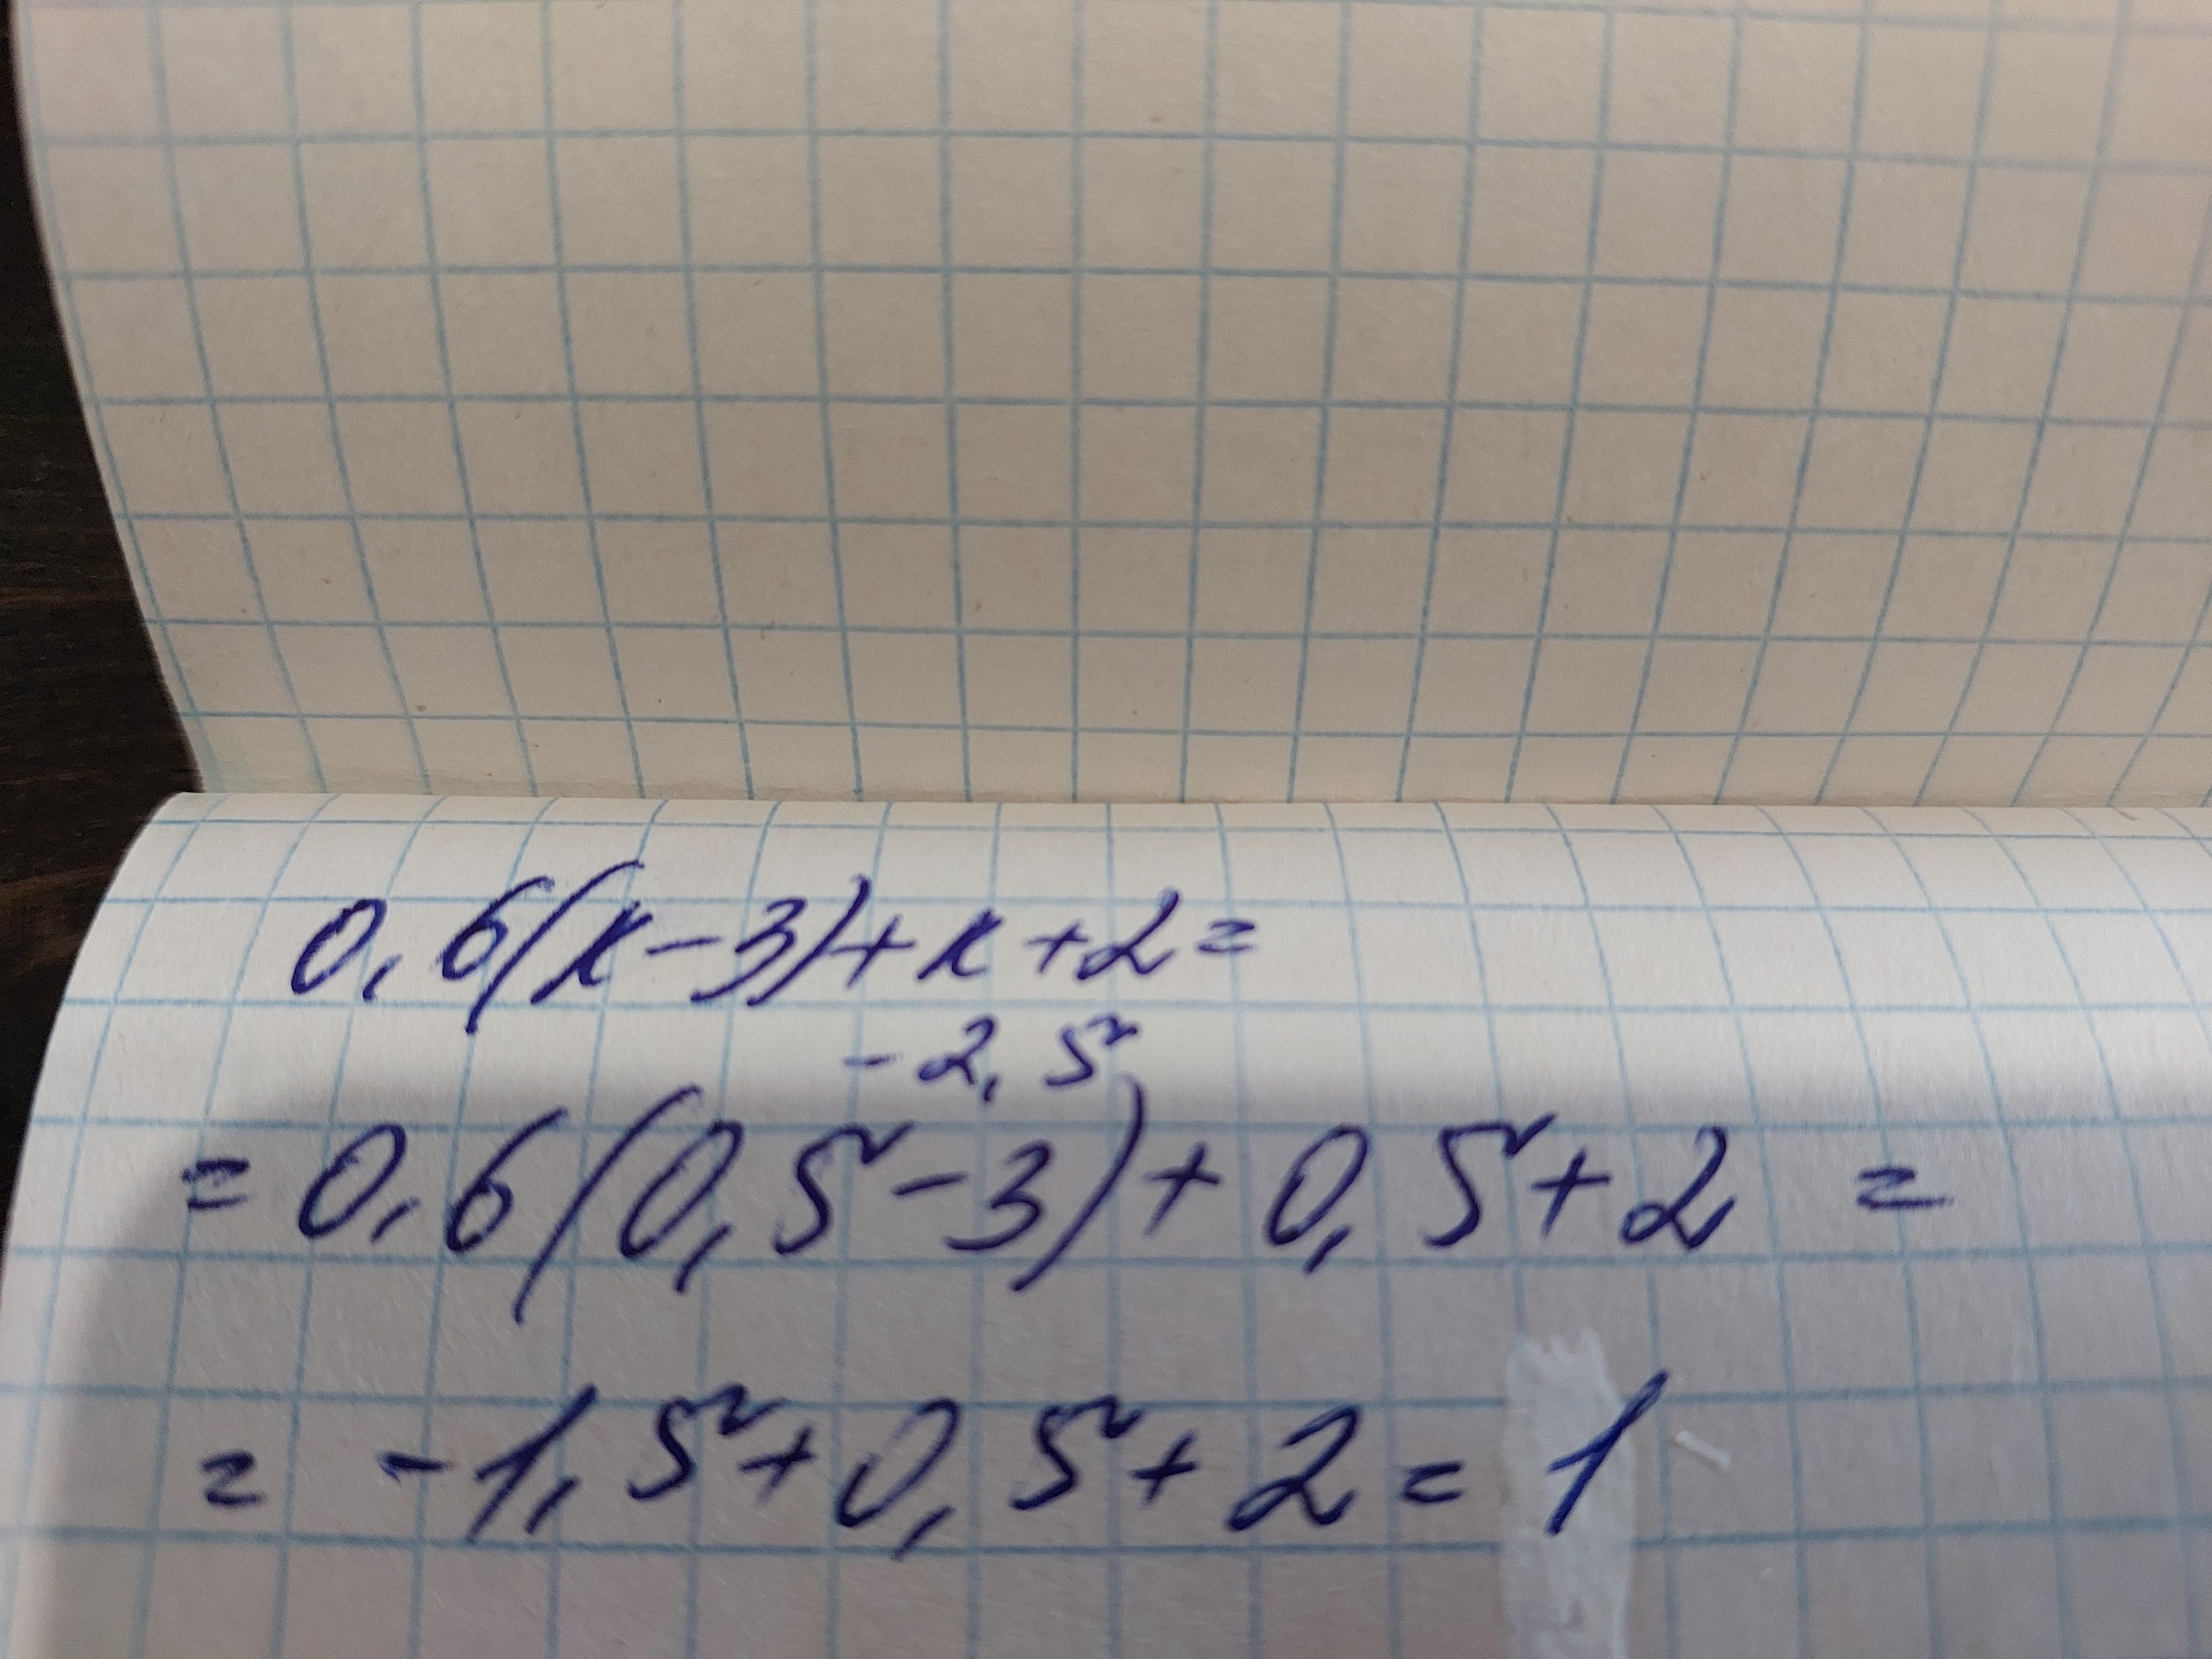 0,6(x-3)+x+2=
-2,5
=0,6(0,5-3)+0,5+2 =
= -1,5+0,5+2=1